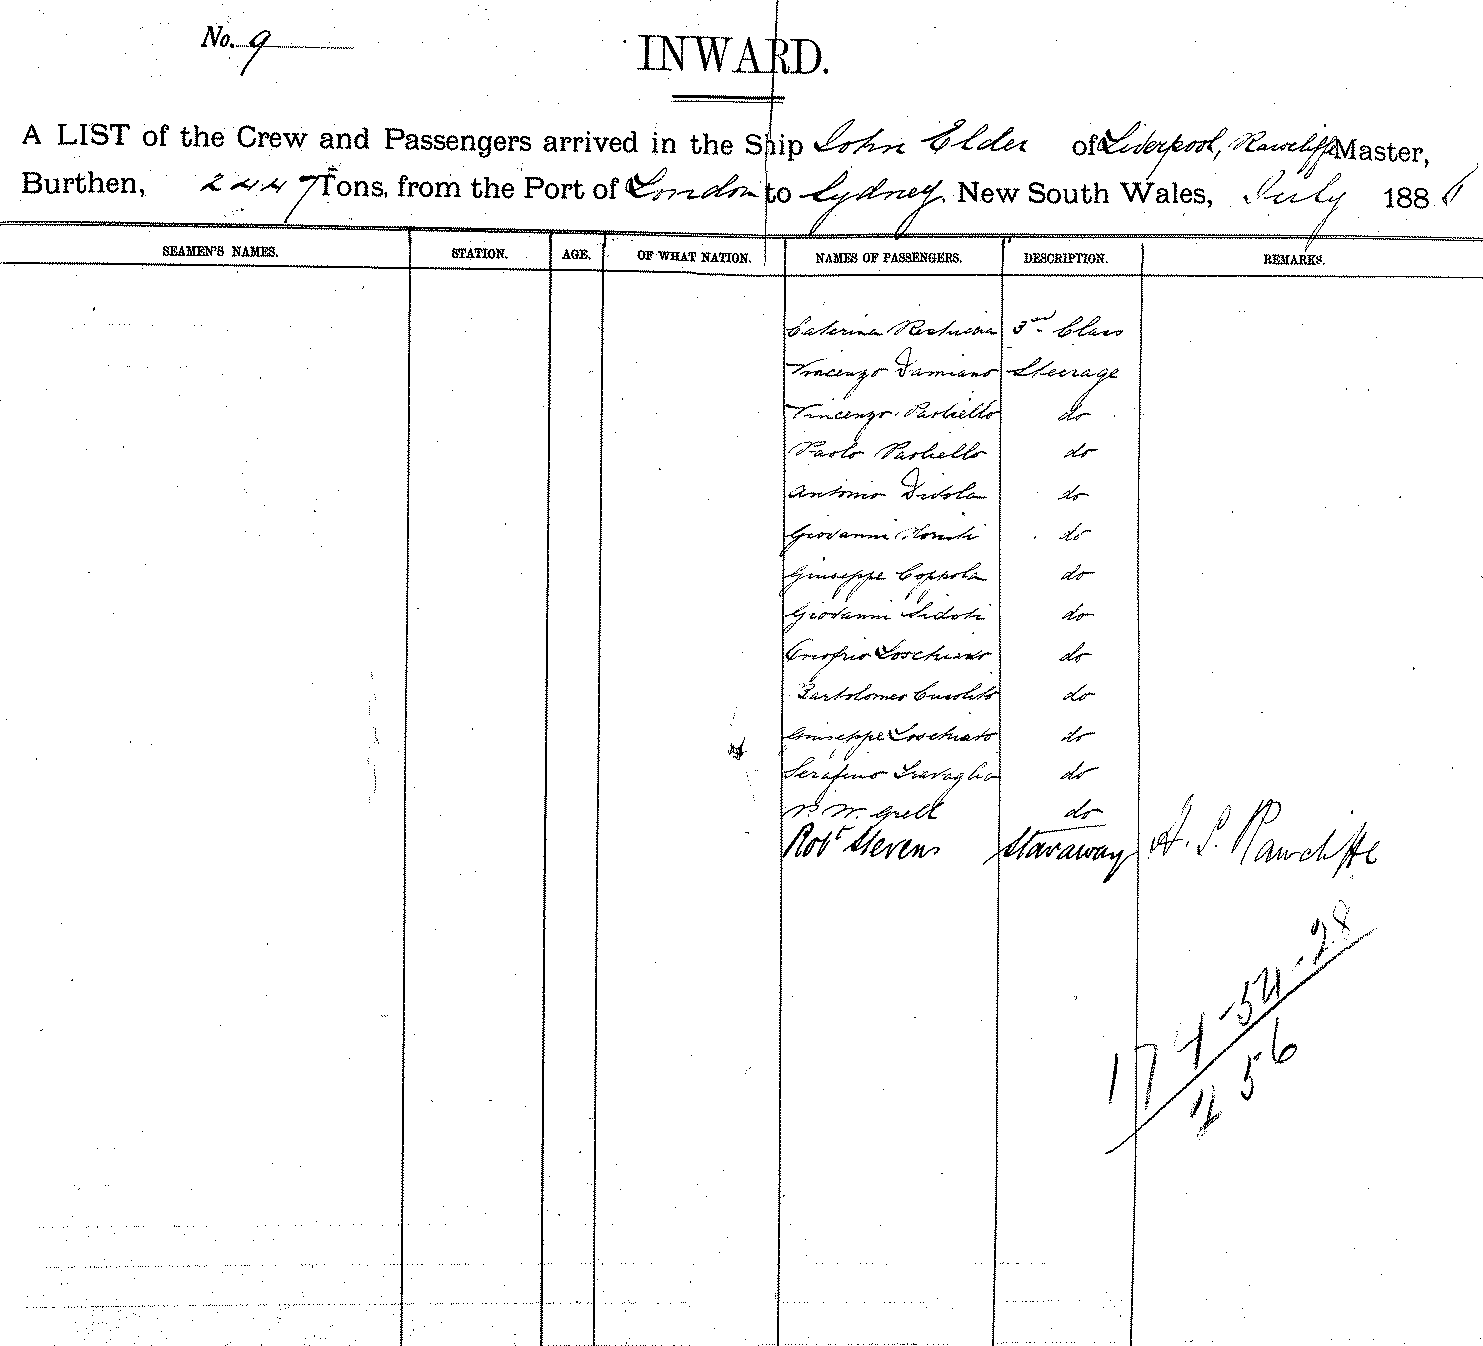 No. 9
INWARD.
A LIST of the Crew and Passengers arrived in the Ship John Elder of Liverpool, Rawcliffe Master,
Burthen, 2447 Tons, from the Port of London to Sydney, New South Wales, July 1886
SEAMEN'S NAMES. STATION. AGE. OF WHAT NATION. NAMES OF PASSENGERS. DESCRIPTION. REMARKS.
Caterina 3rd Class
Vincenzo Damiano Steerage
Vincenzo Paoliello do
Paolo Paoliello do
Antonio do
Giovanni do
Giuseppe Coppola do
Giovanni Sidoti do
Onofrio Loschiavo do
Bartolomeo Cusolito do
Giuseppe Loschiavo do
Serafino Travaglia do
W. Grell do
Robt Stevens Stowaway A. S. Rawcliffe
174-54-28
256